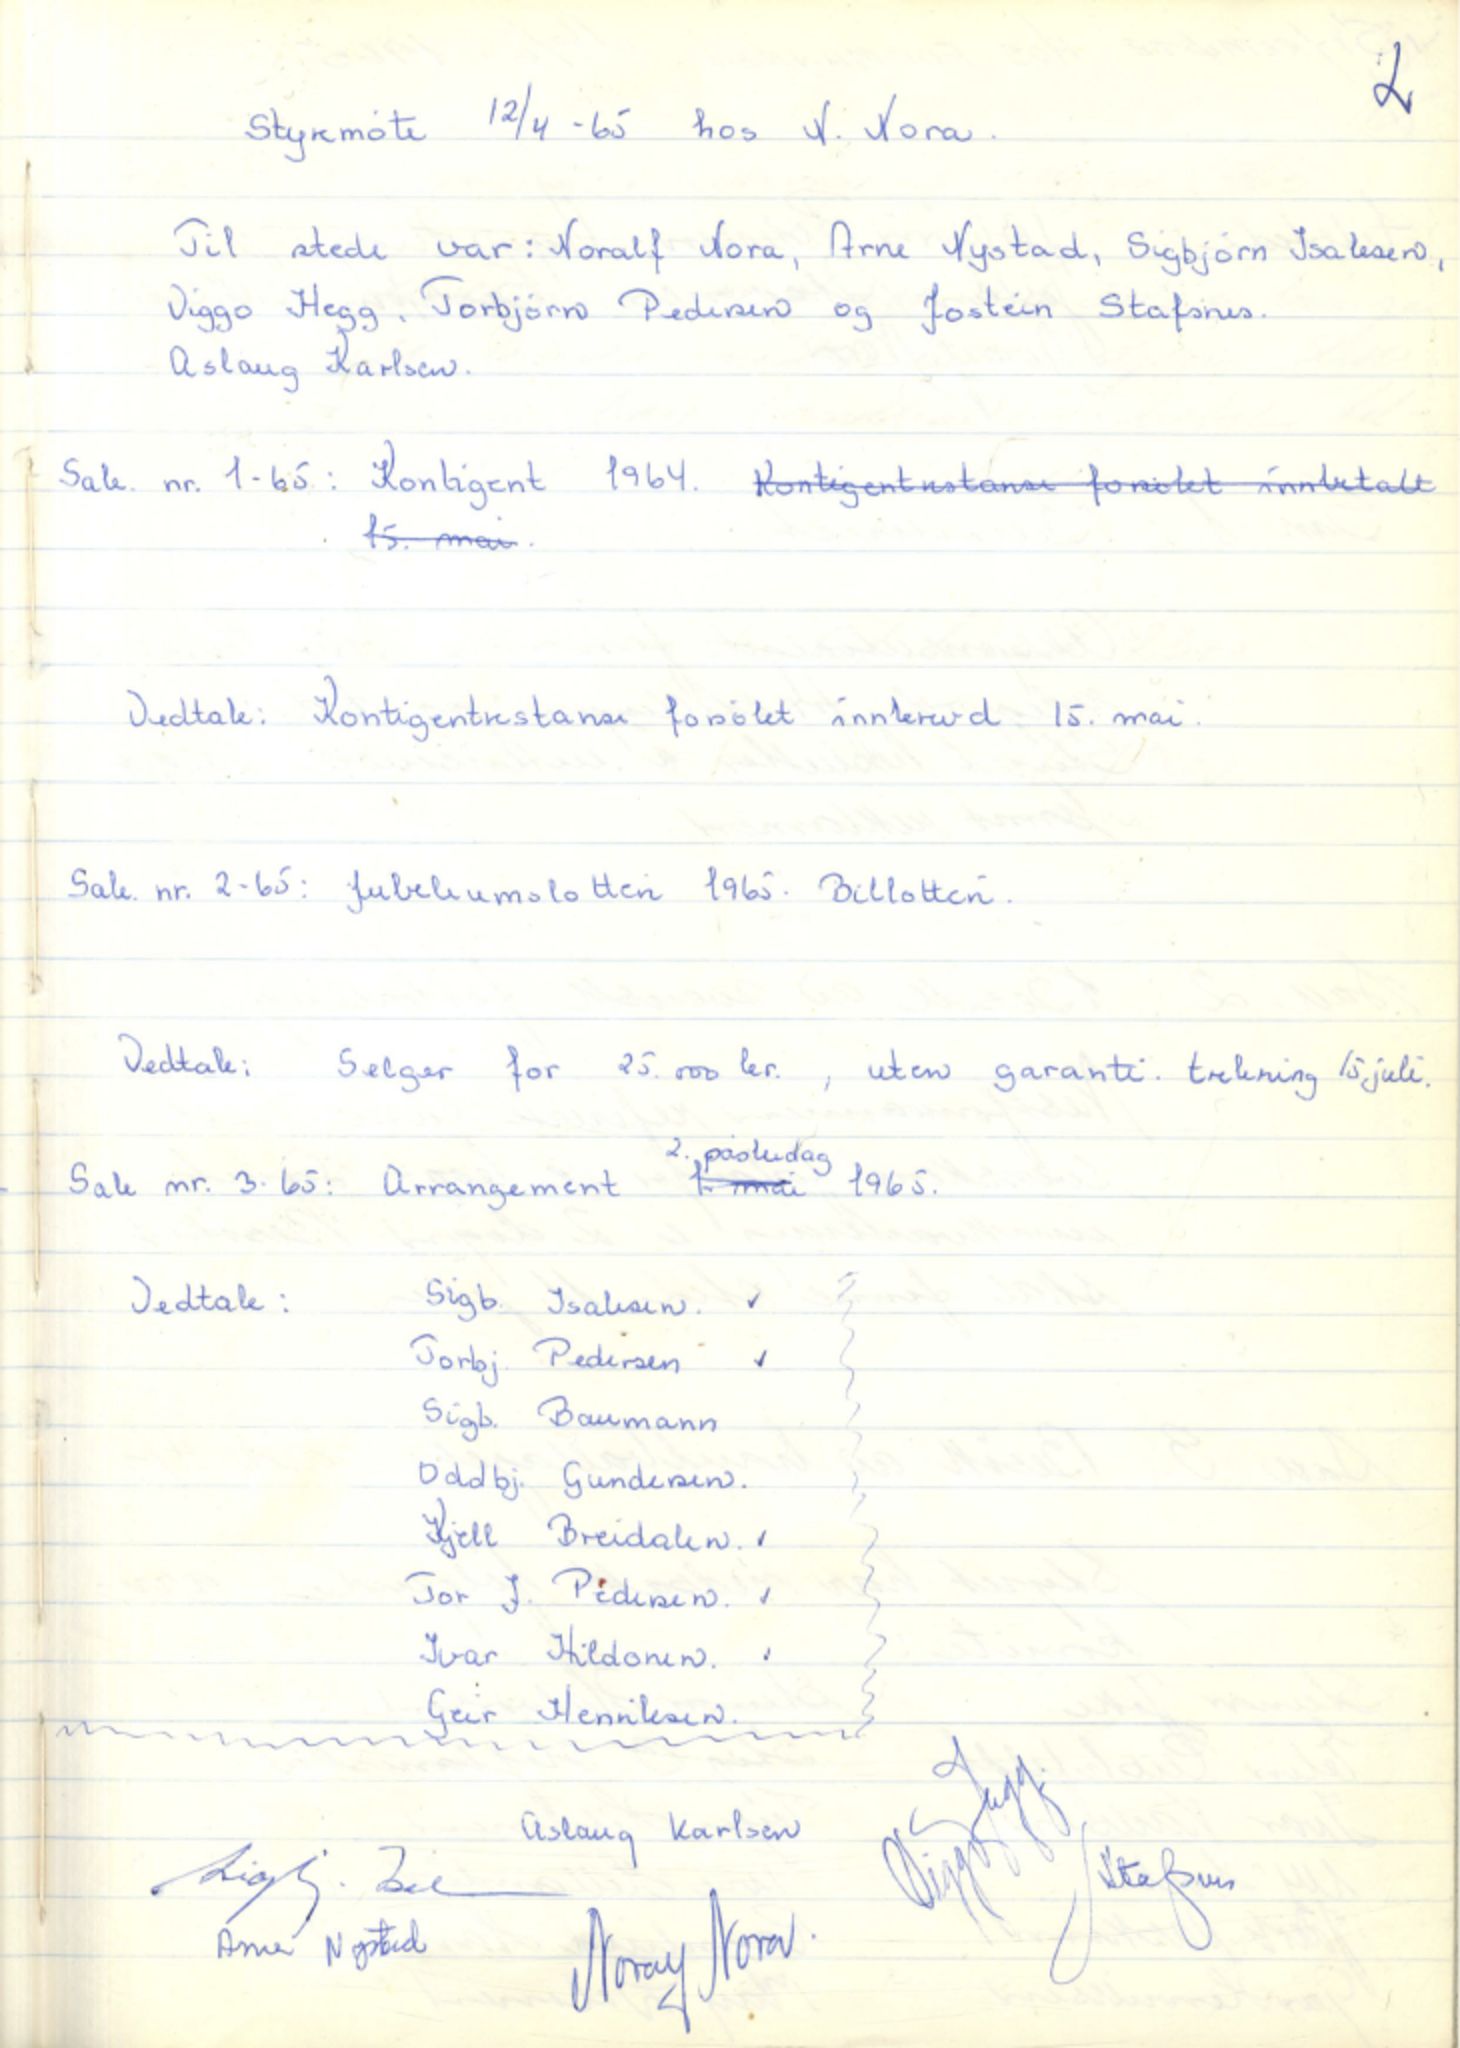 2
Styremöte 12/4-65 hos N. Nora.
Til stede var: Noralf Nora, Arne Nystad, Sigbjörn Isaksen,
Viggo Hegg, Torbjörn Pedersen og Jostein Stafsnes.
Aslaug Karlsen.
Sak. nr. 1-65: Kontigent 1964. Kontigentrestanse forsökt innbetalt
15. mai.
Vedtak: Kontigentrestanse forsökt innkrevd 15. mai.
Sak. nr. 2-65: Jubeleumslotteri 1965. Billotteri.
Vedtak: Selger for 25.000 kr., uten garanti. trekning 15. juli.
2. påskedag
Sak nr. 3-65: Arrangement 1. mai 1965.
Vedtak: Sigb. Isaksen. ✓
Torbj. Pedersen ✓
Sigb. Baumann
Oddbj. Gundersen.
Kjell Breidalen. ✓
Tor J. Pedersen. ✓
Ivar Hildonen. ✓
Geir Henriksen.
Aslaug Karlsen
Viggo Hegg.
J Stafsnes
Arne Nystad
Noralf Nora.